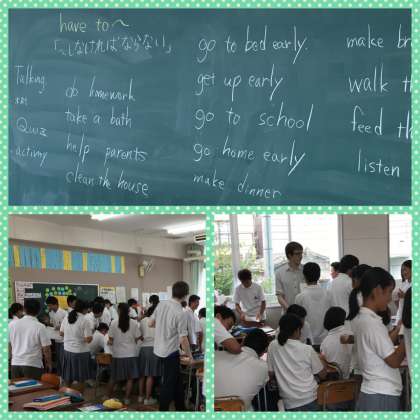 have to～
「～しなければならない」
Talking
Quiz
activity
do homework
take a bath
help parents
clean the house
go to bed early.
get up early
go to school
go home early
make dinner
make br
walk th
feed th
listen